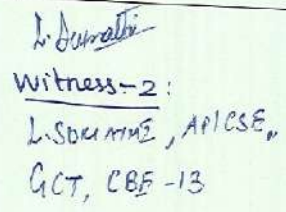 L. Sumathi
Witness-2:
L. SUMATHI, AP/CSE,,
GCT, CBE-13